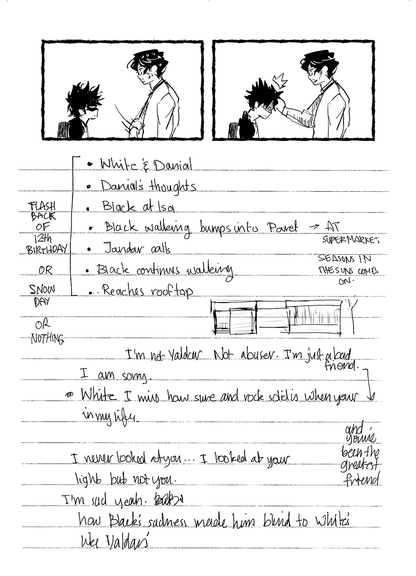 • White & Danial
• Danial's thoughts
• Black at Isa
• Black walking bumps into Pavel → AT SUPERMARKET
SEASONS IN
THE SUN COMES
ON.
• Jandar calls
• Black continues walking
• Reaches rooftop
FLASH
BACK
OF
12th
BIRTHDAY
OR
SNOW
DAY
OR
NOTHING
I'm not Valdar Not abuser. I'm just a bad
friend.
I am sorry.
White I miss how sure and rock solid is when your
in my life.
and
you've
been the
greatest
friend.
I never looked at you... I looked at your
light but not you.
I'm sad yeah.
how Black's sadness made him blind to White's
like Valdar's